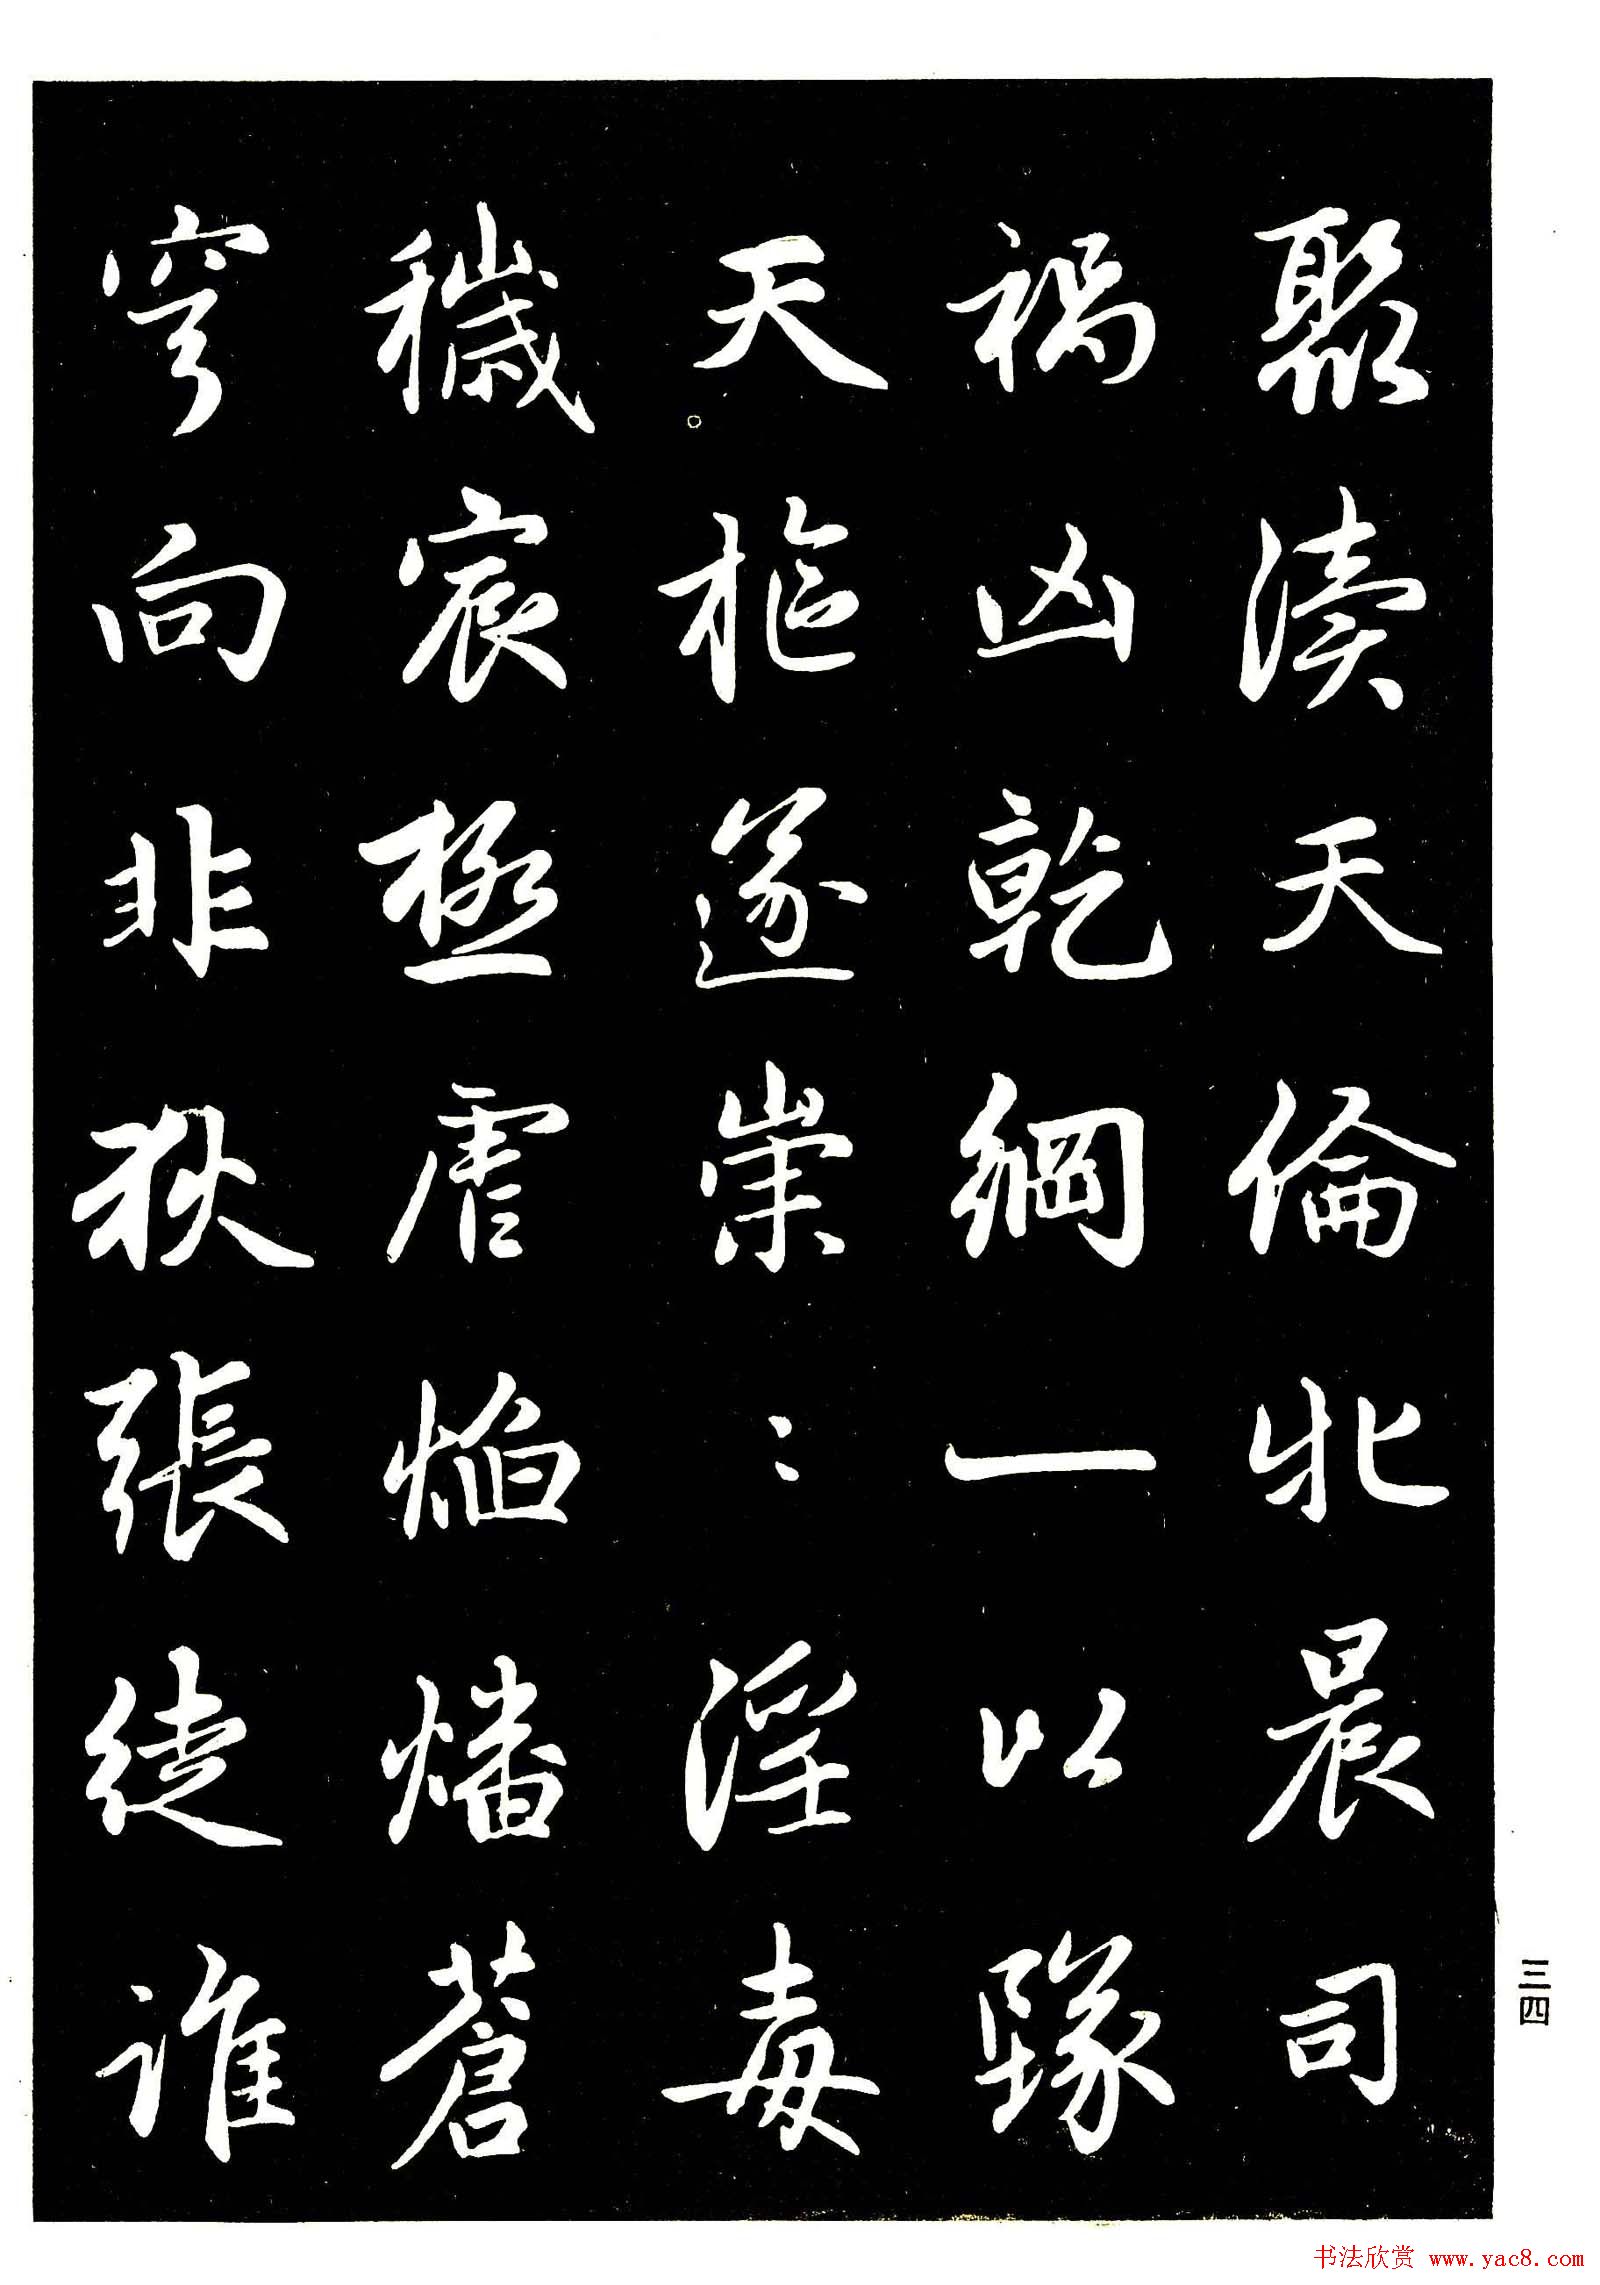 聚瀆天倫牝晨司
禍凶乾綱一以墜
天樞遂崇〻淫毒
穢宸極虐焰燔蒼
穹向非狄張徒誰
三四
书法欣赏 www.yac8.com